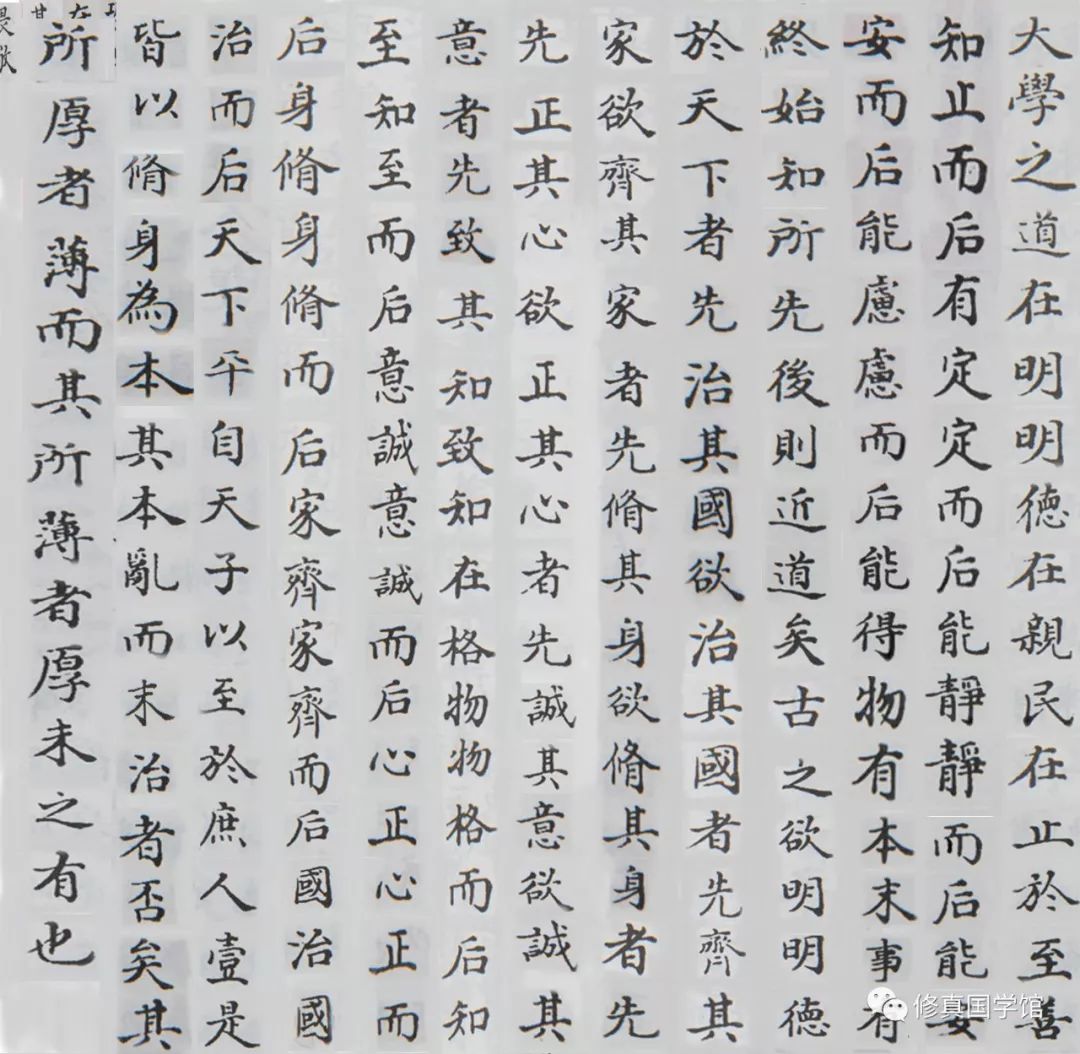 大學之道在明明德在親民在止於至善
知止而后有定定而后能靜靜而后能安
安而后能慮慮而后能得物有本末事有
終始知所先後則近道矣古之欲明明德
於天下者先治其國欲治其國者先齊其
家欲齊其家者先脩其身欲脩其身者先
先正其心欲正其心者先誠其意欲誠其
意者先致其知致知在格物物格而后知
至知至而后意誠意誠而后心正心正而
后身脩身脩而后家齊家齊而后國治國
治而后天下平自天子以至於庶人壹是
皆以脩身為本其本亂而末治者否矣其
所厚者薄而其所薄者厚未之有也
修真国学馆